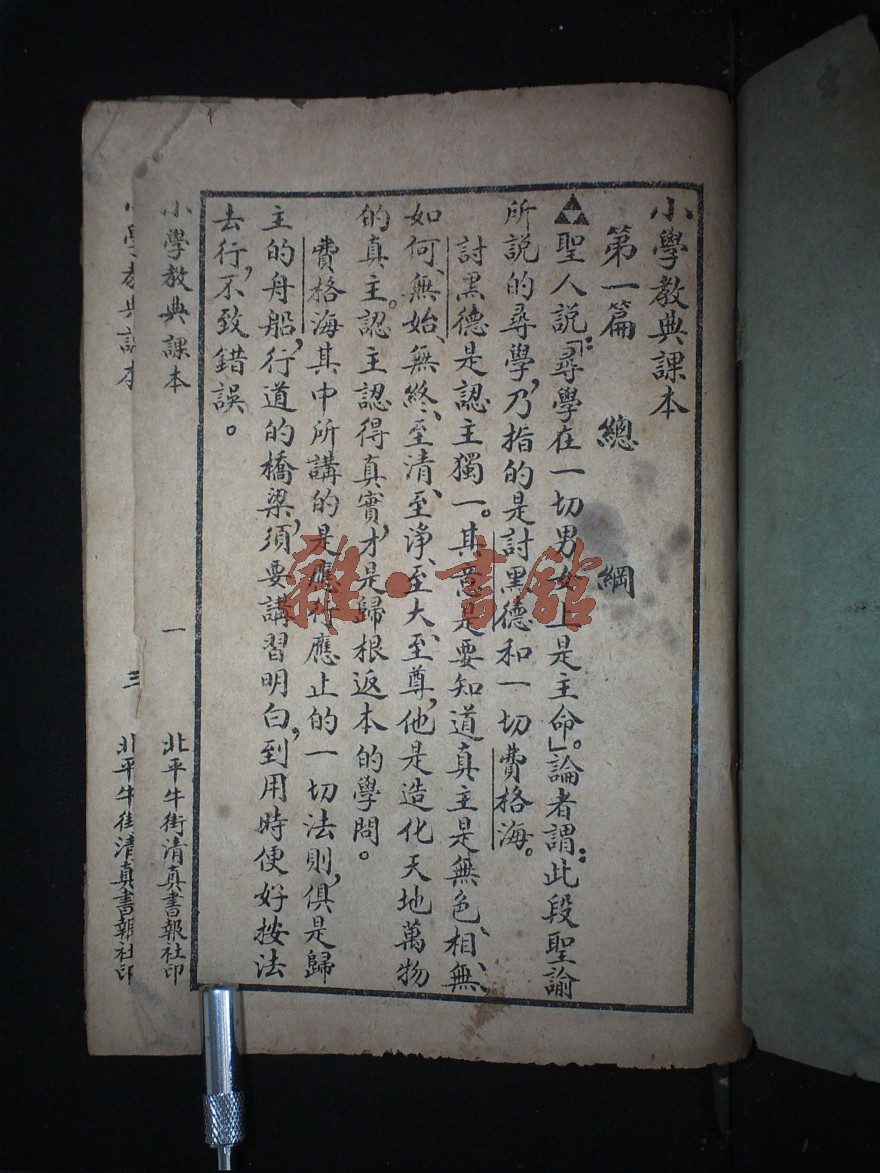 小學教典課本
第一篇 總綱
聖人說:「尋學在一切男女上是主命」。論者謂:此段聖諭
所說的尋學,乃指的是討黑德和一切費格海。
討黑德是認主獨一。其意是要知道真主是無色、相、無、
如何、無始、無終、至清、至淨、至大、至尊,他是造化天地萬物
的真主。認主認得真實,才是歸根返本的學問。
費格海其中所講的是應行應止的一切法則,俱是歸
主的舟船,行道的橋梁,須要講習明白,到用時便好按法
去行,不致錯誤。
小學教典課本 一 北平牛街清真書報社印
小學教典課本 三 北平牛街清真書報社印
雜·書館